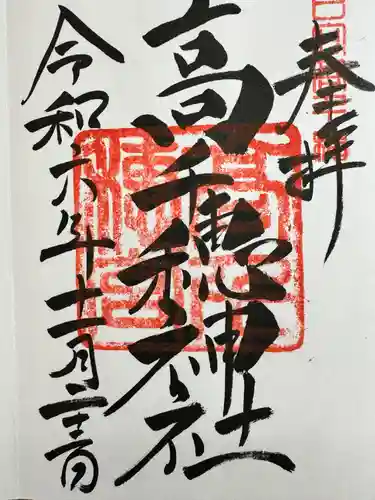 奉拝
高千穂神社
令和六年十一月二十三日